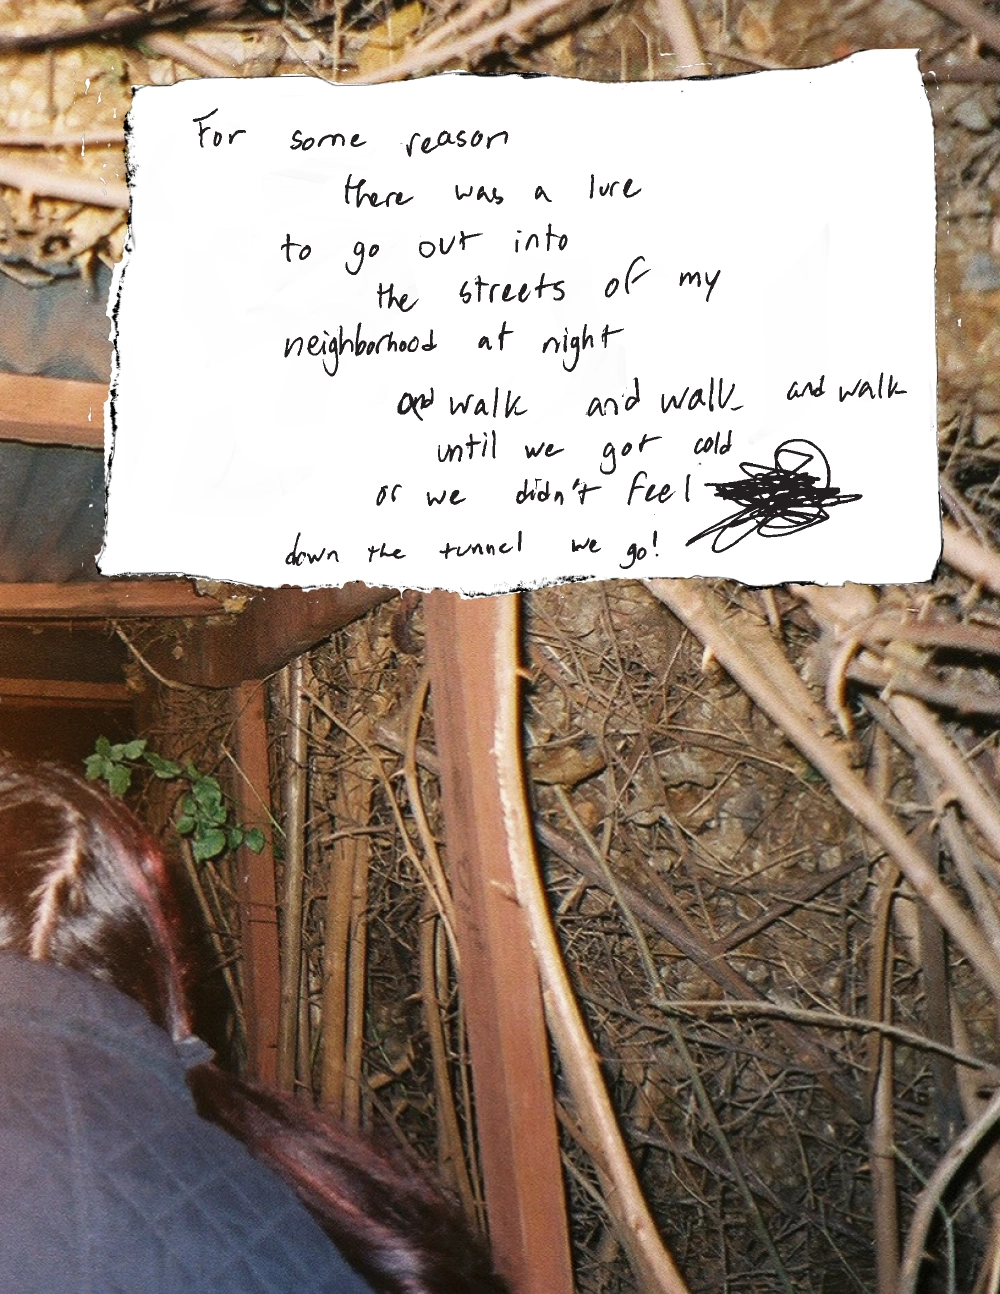 For some reason
there was a lure
to go out into
the streets of my
neighborhood at night
and walk and walk and walk
until we got cold
or we didn't feel
down the tunnel we go!